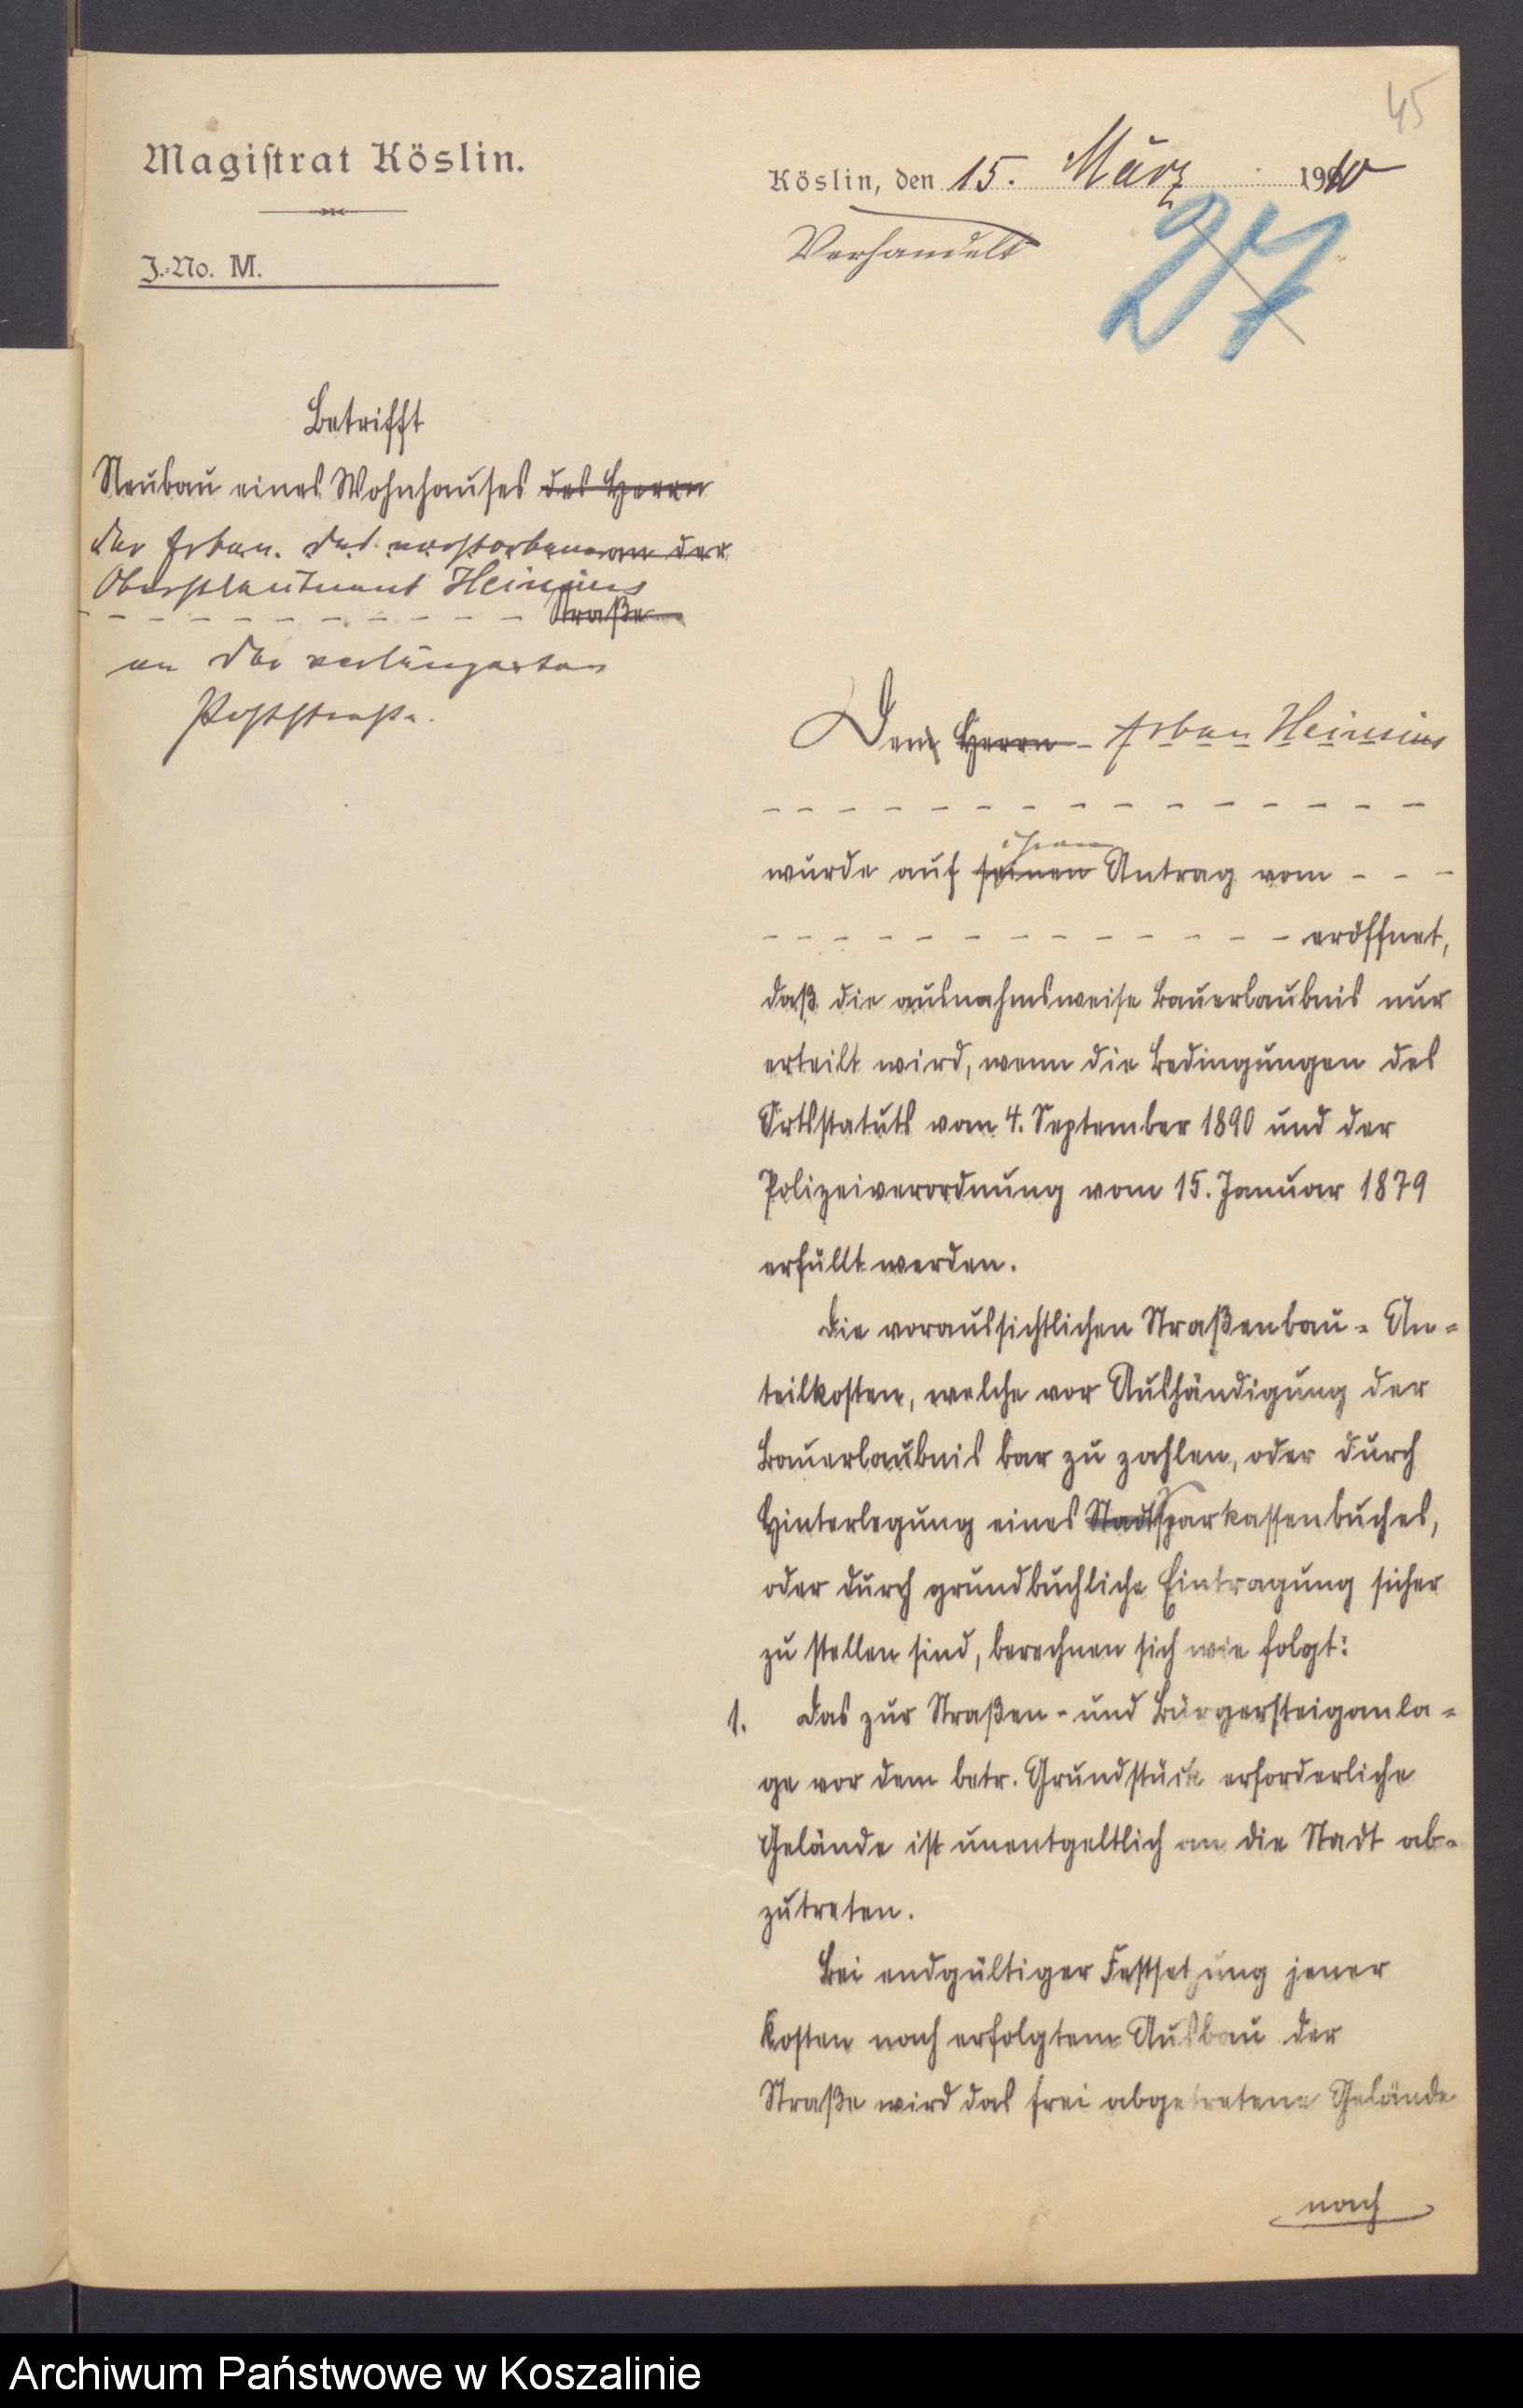 45
Magistrat Köslin.
Köslin, den 15. März 1910
Verhandelt
27
J.-No. M.
Betrifft
Neubau eines Wohnhauses des Herrn
der Erben des verstorbenen an der
Oberstleutnant Heinsius
Straße
an der verlängerten
Poststraße.
Den Herrn Erben Heinsius
ihren
wurde auf seinen Antrag vom - - -
eröffnet,
daß die ausnahmsweise Bauerlaubnis nur
erteilt wird, wenn die Bedingungen des
Ortsstatuts vom 4. September 1890 und der
Polizeiverordnung vom 15. Januar 1879
erfüllt werden.
Die voraussichtlichen Straßenbau-An-
teilkosten, welche vor Aushändigung der
Bauerlaubnis bar zu zahlen, oder durch
Hinterlegung eines Stadtsparkassenbuches,
oder durch grundbuchliche Eintragung sicher
zu stellen sind, berechnen sich wie folgt:
1. Das zur Straßen- und Bürgersteiganla-
ge vor dem betr. Grundstück erforderliche
Gelände ist unentgeltlich an die Stadt ab-
zutreten.
Bei endgültiger Festsetzung jener
Kosten nach erfolgtem Ausbau der
Straße wird das frei abgetretene Gelände
nach
Archiwum Państwowe w Koszalinie